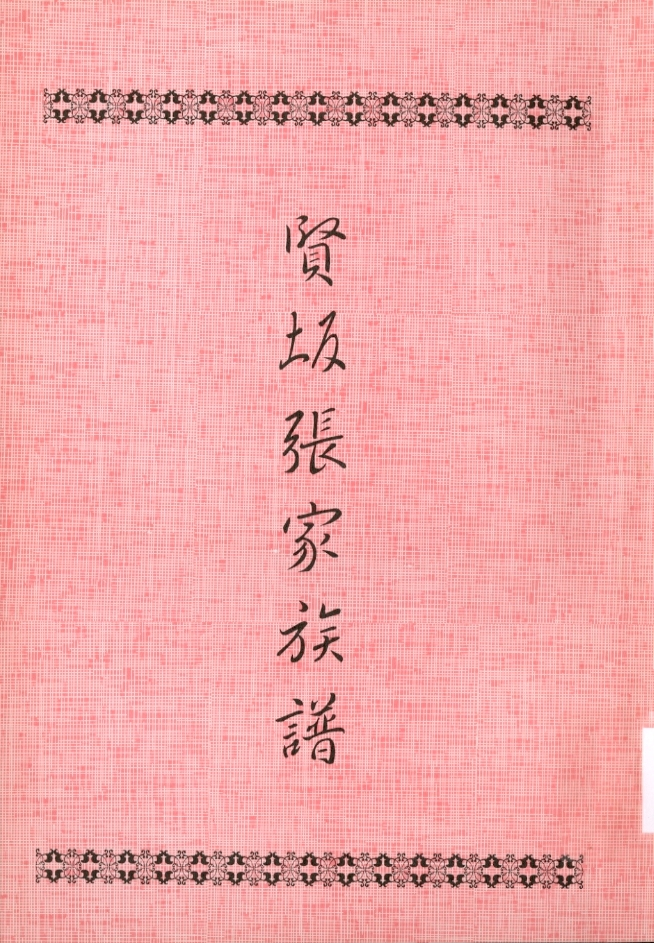 賢坂張家族譜